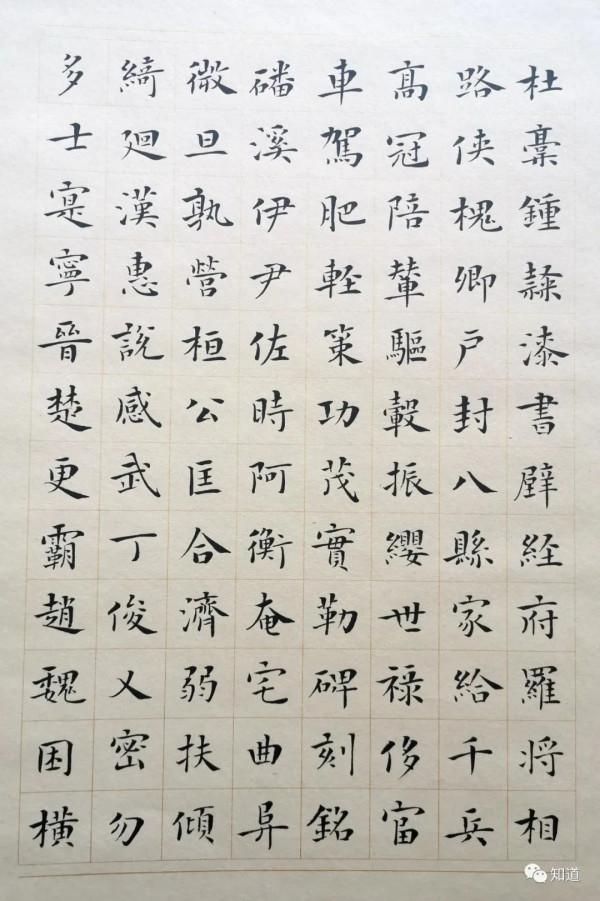 杜稾鍾隸漆書壁経府羅将相
路俠槐卿戶封八縣家給千兵
髙冠陪輦驅轂振纓世祿侈富
車駕肥軽策功茂實勒碑刻銘
磻溪伊尹佐時阿衡奄宅曲阜
微旦孰營桓公匡合濟弱扶傾
綺廻漢惠說感武丁俊乂密勿
多士寔寧晉楚更霸趙魏困橫
知道